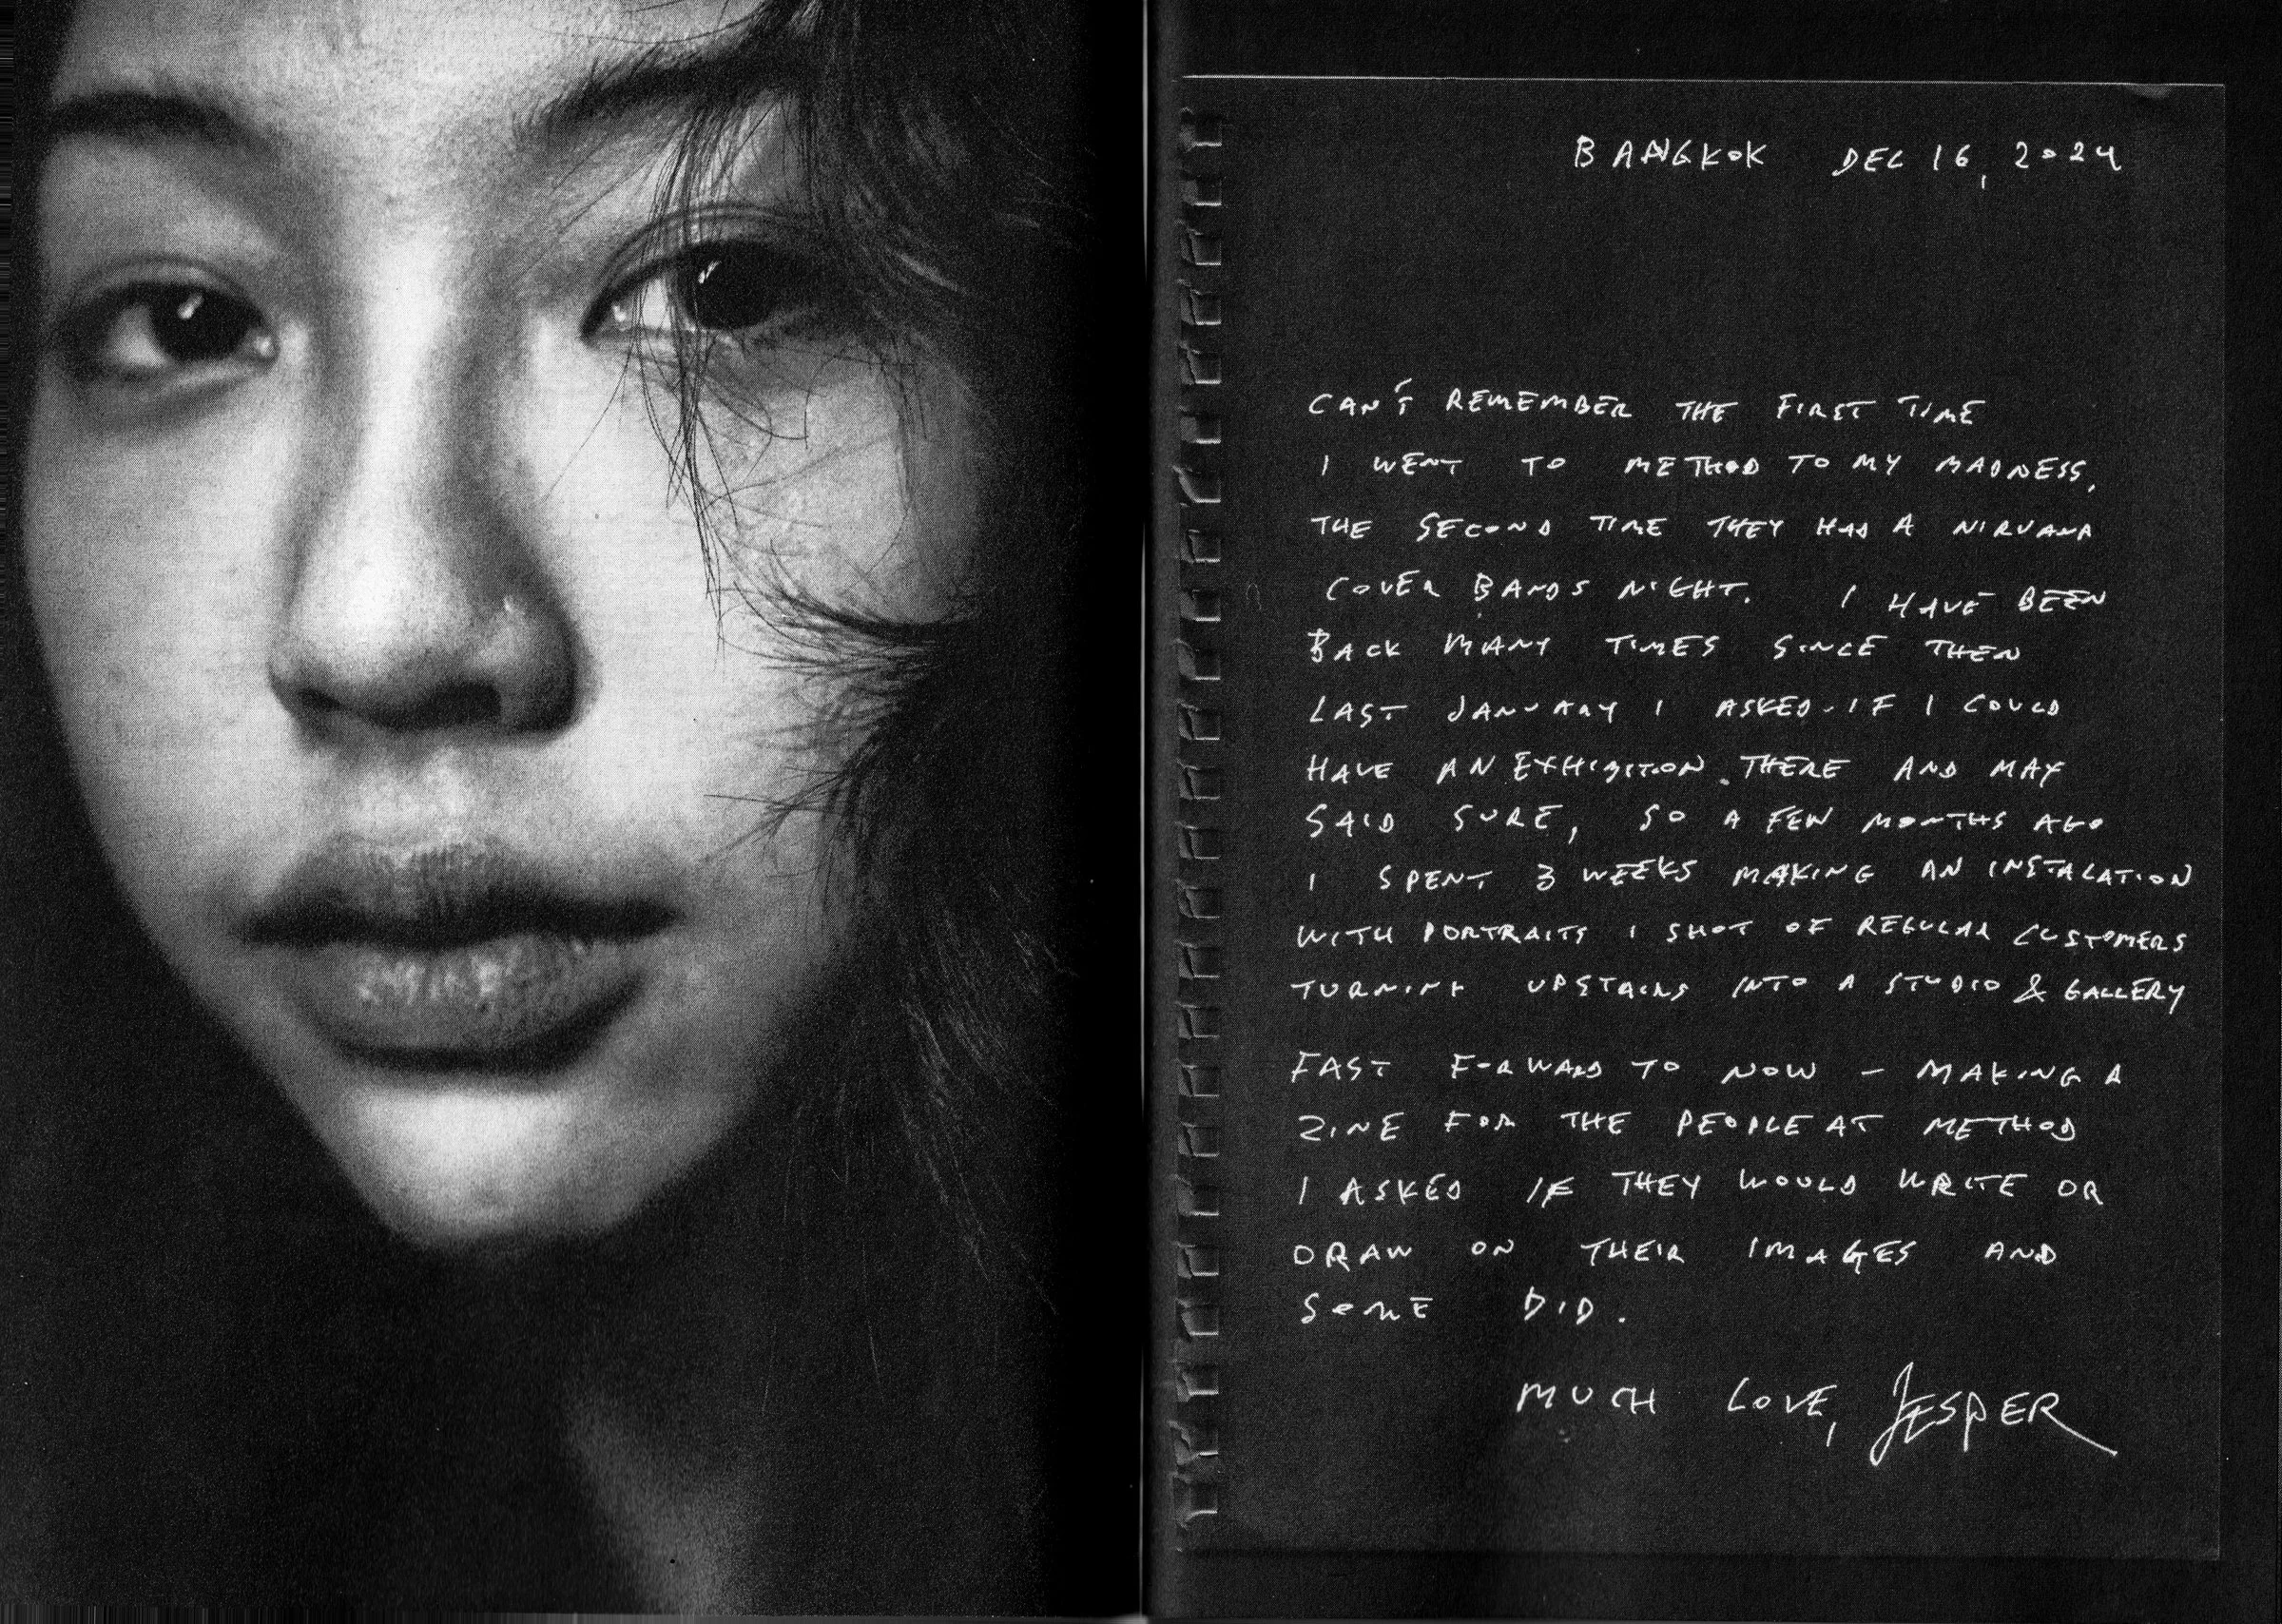 BANGKOK DEC 16, 2024
CAN'T REMEMBER THE FIRST TIME
I WENT TO METHOD TO MY MADNESS,
THE SECOND TIME THEY HAD A NIRVANA
COVER BANDS NIGHT. I HAVE BEEN
BACK MANY TIMES SINCE THEN
LAST JANUARY I ASKED IF I COULD
HAVE AN EXHIBITION THERE AND MAY
SAID SURE, SO A FEW MONTHS AGO
I SPENT 3 WEEKS MAKING AN INSTALATION
WITH PORTRAITS I SHOT OF REGULAR CUSTOMERS
TURNING UPSTAIRS INTO A STUDIO & GALLERY
FAST FORWARD TO NOW - MAKING A
ZINE FOR THE PEOPLE AT METHOD
I ASKED IF THEY WOULD WRITE OR
DRAW ON THEIR IMAGES AND
SOME DID.
MUCH LOVE, JESPER